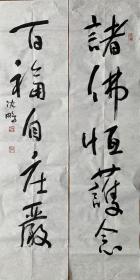 諸佛恒護念
百福自莊嚴
沈鵬